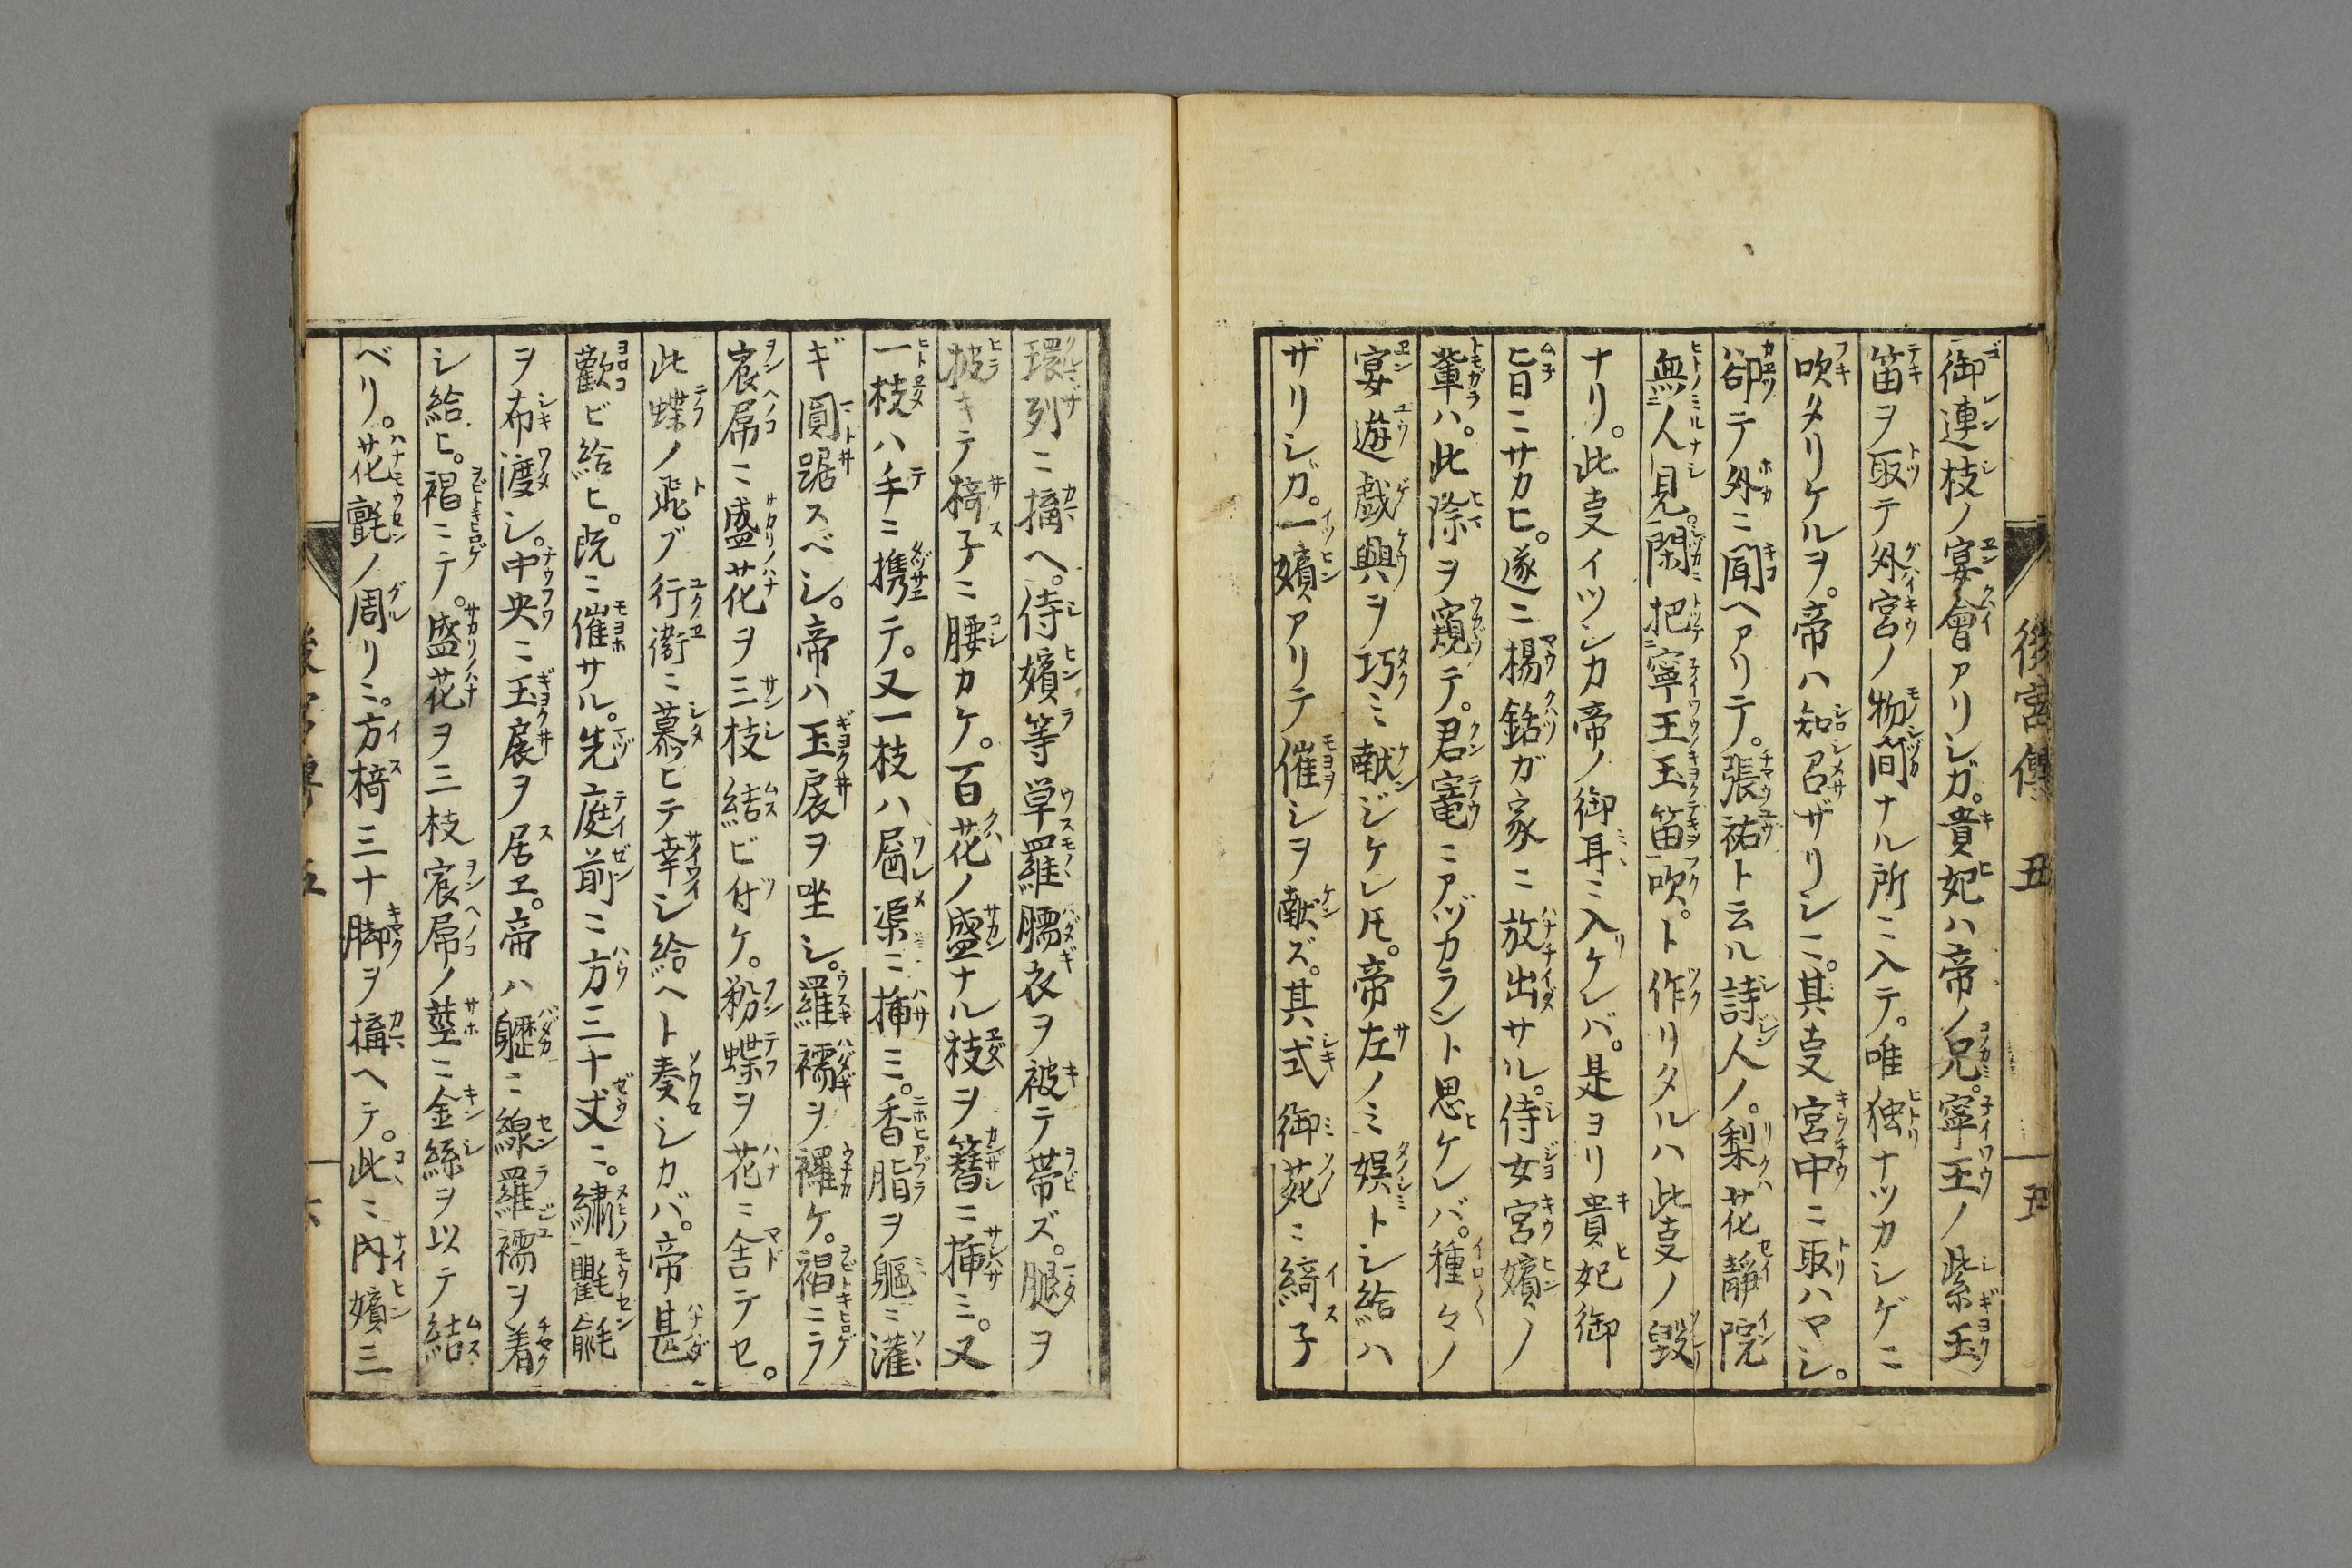 後宮傳 五 五
御連枝ノ宴會アリシガ。貴妃ハ帝ノ兄。寧王ノ紫玉
笛ヲ取テ外宮ノ物間ナル所ニ入テ。唯独ナツカシゲニ
吹タリケルヲ。帝ハ知召ザリシニ。其叓宮中ニ取ハヤシ。
却テ外ニ聞ヘアリテ。張祐ト云ル詩人ノ。梨花靜院
無人見。閑把寧王玉笛吹。ト作リタルハ此叓ノ毀
ナリ。此叓イツシカ帝ノ御耳ニ入ケレバ。是ヨリ貴妃御
旨ニサカヒ。遂ニ楊銛ガ家ニ放出サル。侍女宮嬪ノ
輩ハ。此隙ヲ窺テ。君寵ニアヅカラント思ヒケレバ。種々ノ
宴遊戯興ヲ巧ミ献ジケレ𪜈。帝左ノミ娯トシ給ハ
ザリシガ。一嬪アリテ催シヲ献ズ。其式御苑ニ綺子
環列ニ搆ヘ。侍嬪等単羅臑衣ヲ被テ帯ズ。腿ヲ
披キテ椅子ニ腰カケ。百花ノ盛ナル枝ヲ簪ニ挿ミ。又
一枝ハ手ニ携テ。又一枝ハ渠ニ挿ミ。香脂ヲ軀ニ灌
ギ圓踞スベシ。帝ハ玉扆ヲ坐シ。羅襦ヲ襬ケ。裮ニラ
屌ニ盛花ヲ三枝結ビ付ケ。粉蝶ヲ花ニ舎デセ。
此蝶ノ飛ブ行衞ニ慕ヒテ幸シ給ヘト奏シカバ。帝甚
歡ビ給ヒ。既ニ催サル。先庭前ニ方三十丈ニ。繡氍毹
ヲ布渡シ。中央ニ玉扆ヲ居ヱ。帝ハ軀ニ線羅襦ヲ着
シ給ヒ。裮ニテ。盛花ヲ三枝屌ノ莖ニ金絲ヲ以テ結
ベリ。花氈ノ周リニ。方椅三十脚ヲ搆ヘテ。此ニ內嬪三